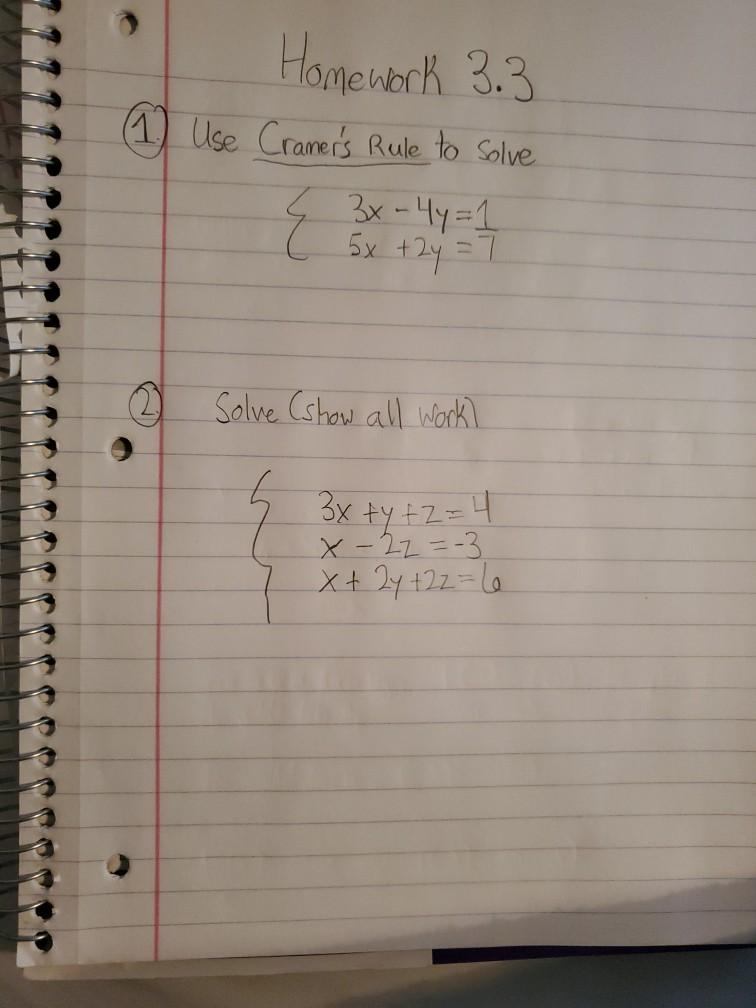 Homework 3.3
1. Use Cramer's Rule to Solve
{ 3x - 4y = 1
5x + 2y = 7
2. Solve (show all work)
{ 3x + y + z = 4
x - 2z = -3
x + 2y + 2z = 6